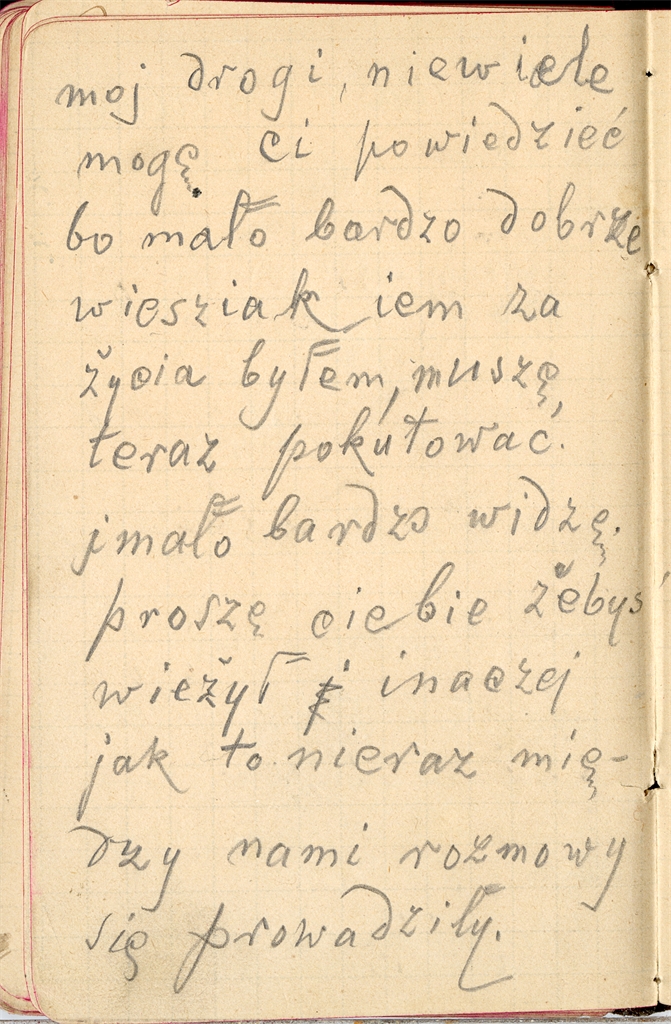 moj drogi, niewiele
mogę ci powiedzieć
bo mało bardzo dobrze
wiesziak iem za
życia byłem, muszę,
teraz pokutować.
j mało bardzo widzę.
proszę ciebie żebyś
wieżył i inaczej
jak to nieraz mię-
dzy nami rozmowy
się prowadziły.